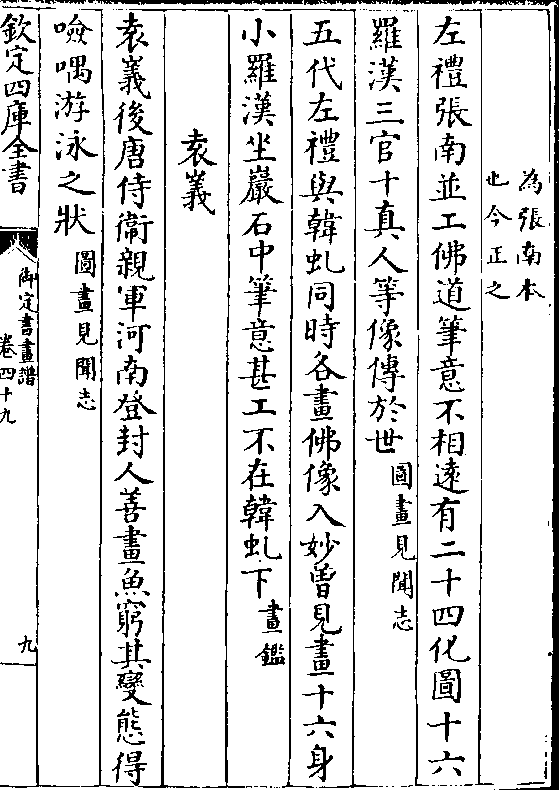 為張南本
也今正之
左禮張南並工佛道筆意不相遠有二十四化圖十六
羅漢三官十真人等像傳於世圖畫見聞志
五代左禮與韓虬同時各畫佛像入妙曾見畫十六身
小羅漢坐巖石中筆意甚工不在韓虬下畫鑑
袁義
袁義後唐侍衞親軍河南登封人善畫魚窮其變態得
噞喁游泳之狀圖畫見聞志
欽定四庫全書
御定書畫譜
卷四十九
九